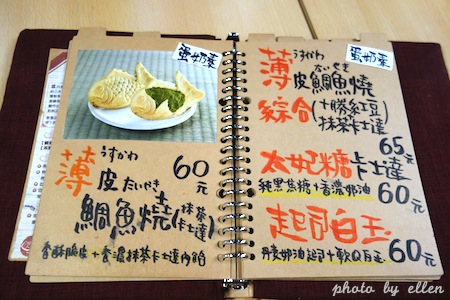 蛋奶素
薄皮鯛魚燒(抹茶卡士達)
うすかわ
たいやき
60元
香酥脆皮+香濃抹茶卡士達內餡
蛋奶素
うすかわ
たいやき
薄皮鯛魚燒
綜合(十勝紅豆抹茶卡士達)
65元
太妃糖卡士達
純黑焦糖+香濃奶油 60元
起司白玉
丹麥奶油起司+軟Q白玉 60元
photo by ellen